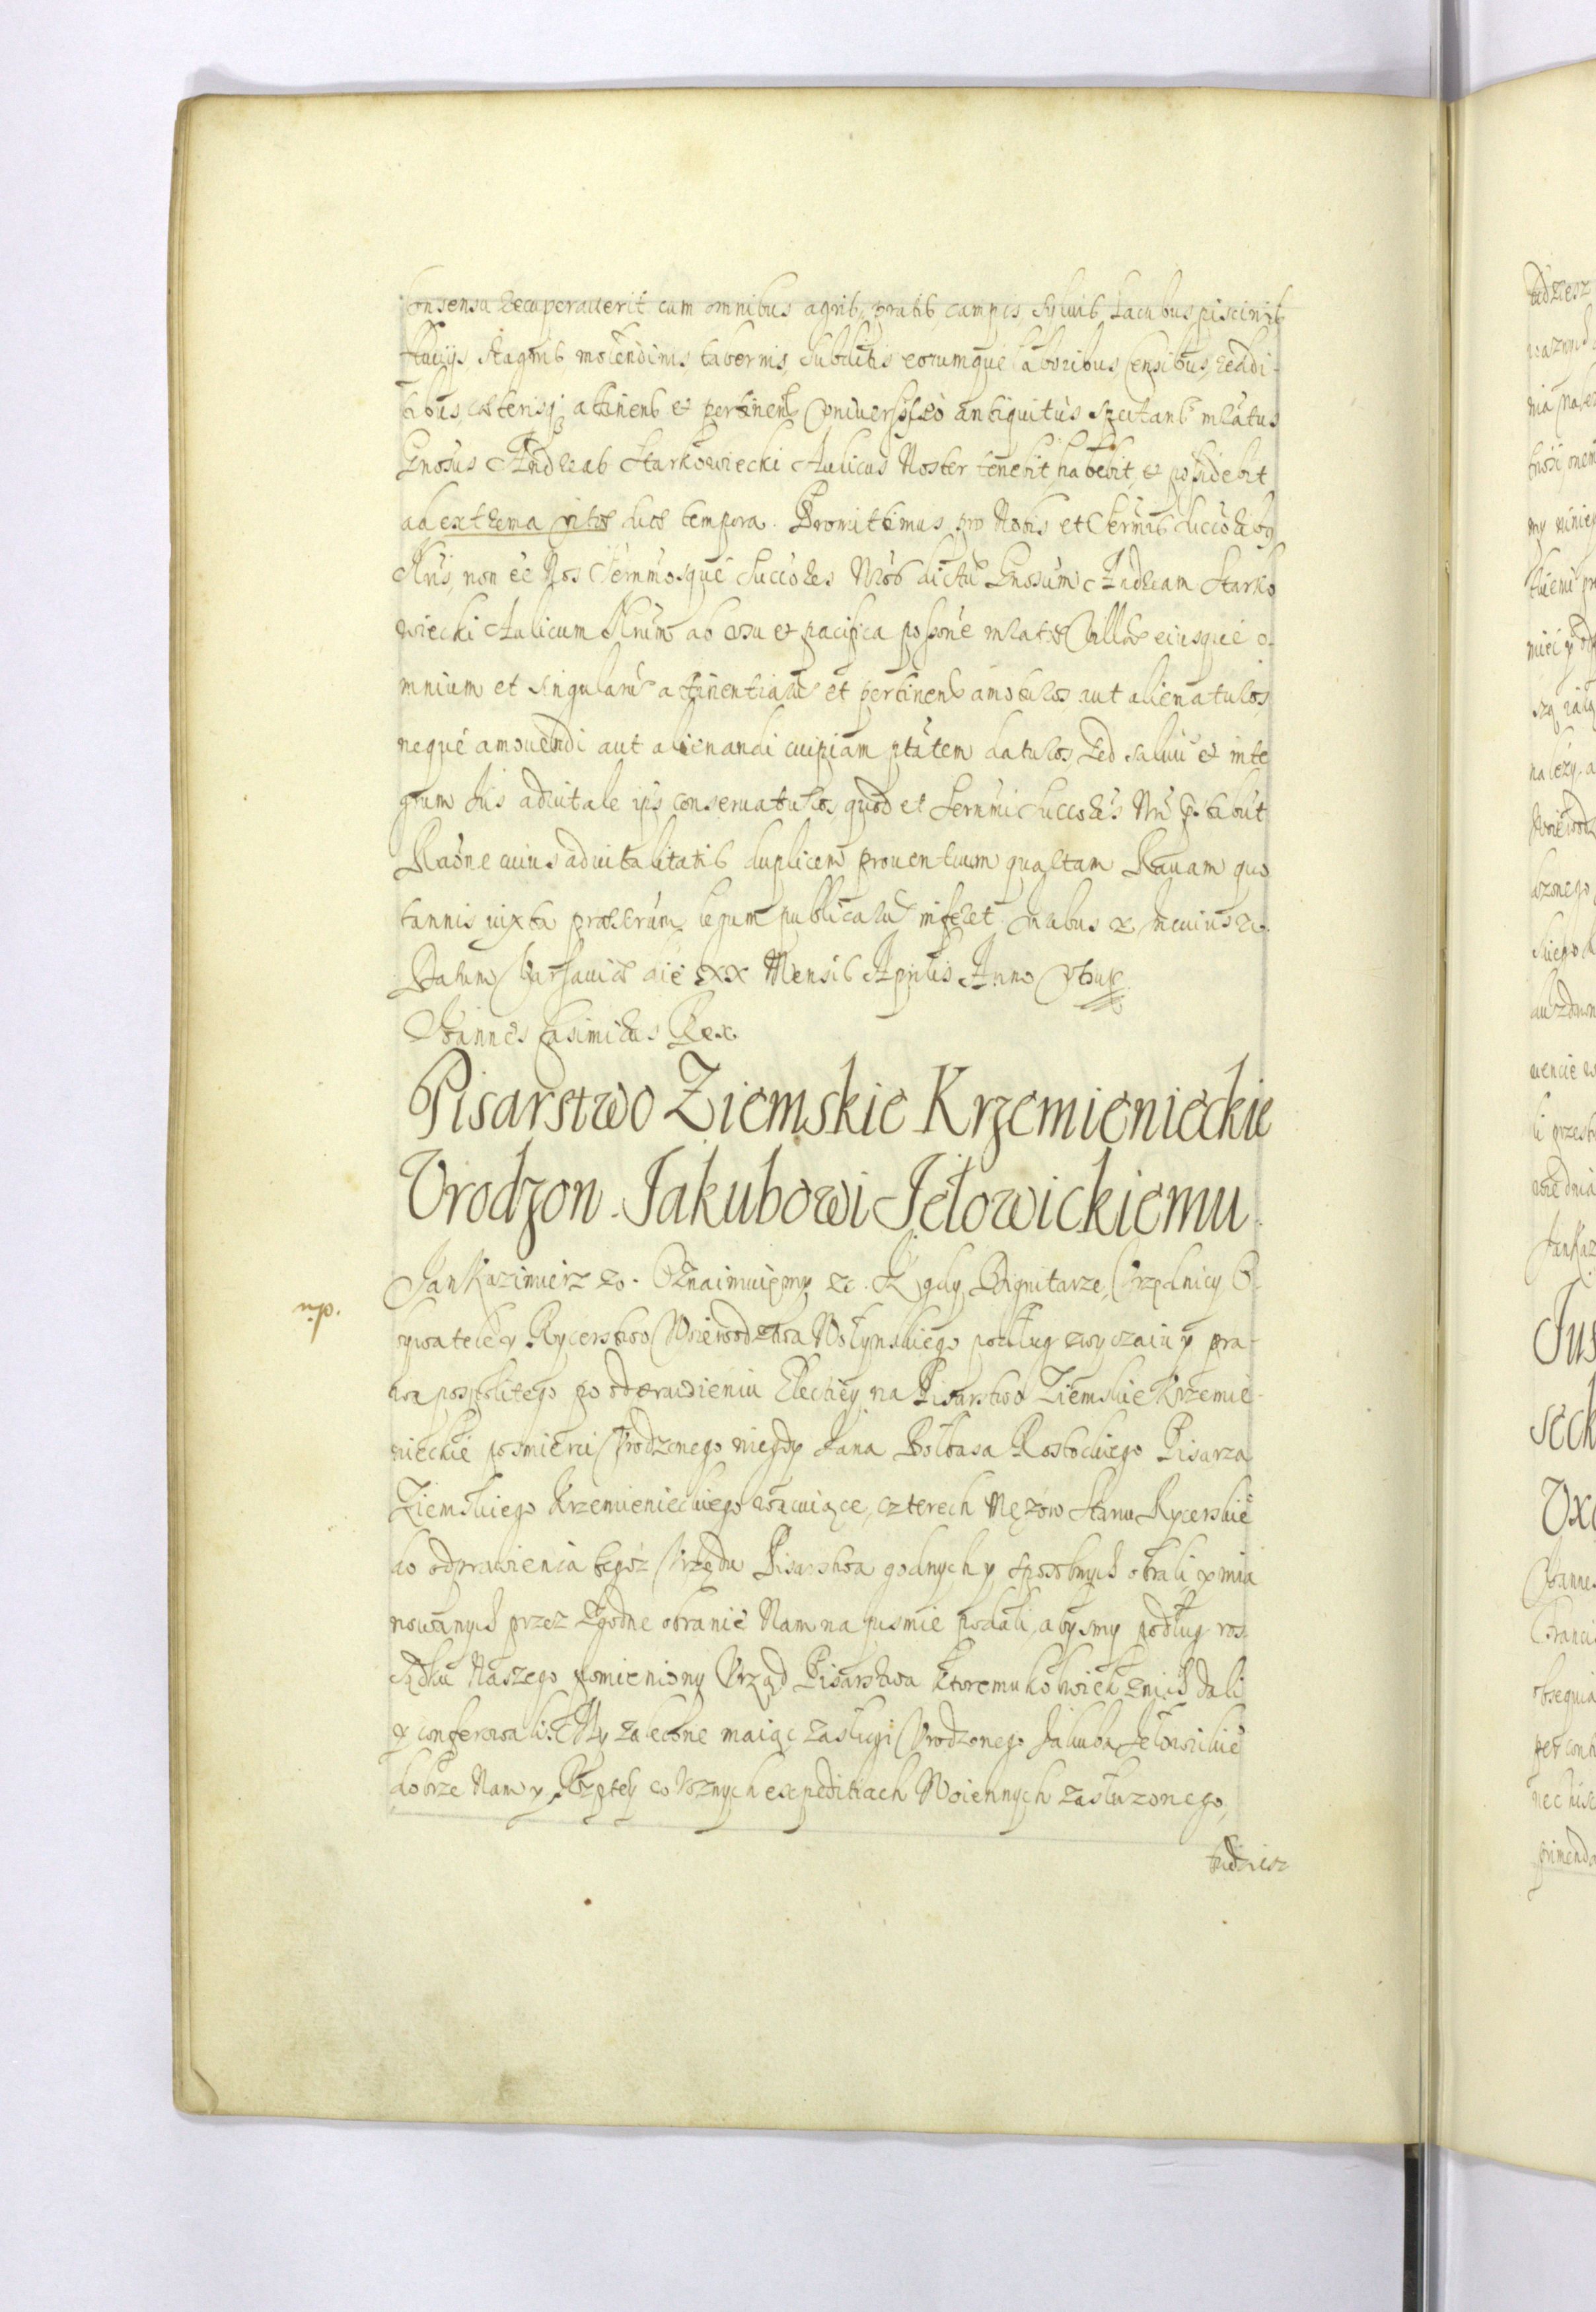 consensu recuperauerit cum omnibus agris, pratis, campis, syluis, Lacubus piscinis
fluuijs, stagnis, molendinis, tabernis, subditis eorumque laboribus, Censibus, reddi-
tibus, cæterisq; attinent et pertinent vniuersis, eò antiquitùs spectant mlatus
Gnosus Andreas Starkowiecki Aulicus Noster tenebit, habebit, et possidebit
ad extrema vitæ suæ tempora. Promittimus pro Nobis et Sermis Succorib9
Nris, non ee Nos Sermosque Succores Nros dictu Gnosum Andream Starko
wiecki Aulicum Nrum ab vsu et pacifica possone mlatæ Villæ eiusque o-
mnium et singular attinentiaru et pertinen amoturos aut alienaturos,
neque amouendi aut alienandi cuipiam ptatem daturos, Sed saluu et inte
grum Jus aduitale ipsi conseruaturos, quod et Sermi Succores Nri pstabut
Raone cuius aduitalitatis duplicem prouentuum quartam Rauam quo
tannis iuxta præscrum legum publicaru inferet. Jnrabus &. Jncuius &.
Datum Varsauiæ die XX Mensis Aprilis Anno vtsup.
Joannes Casimirus Rex.
Pisarstwo Ziemskie Krzemienieckie
Vrodzon. Jakubowi Jełowickiemu.
Jan Kazimierz &. Oznaimuięmy &. Iż gdy Dignitarze, Vrzędnicy, O-
np.
bywatele y Rycerstwo Woiewodztwa Wołynskiego podług zwyczaiu y pra-
wa pospolitego po odprawieniu Elechiey na Pisarstwo Ziemskie Krzemie-
nieckie po smierci Vrodzonego niegdy Jana Bołbasa Rostockiego Pisarza
Ziemskiego Krzemienieckiego wakuiące, czterech Męzow Stanu Rycerskie
do odprawienia tegoz Vrzędu Pisarstwa godnych y sposobnych obrali, y mia
nowanych przez zgodne obranie Nam na pismie podali, abysmy podług ros
sądku Naszego pomieniony Vrząd Pisarstwa ktoremukolwiek znich dali
y conferowali. My zalecone maiąc zasługi Vrodzonego Jakuba Jełowickie
dobrze Nam y Rzptey w roznych expeditiach Woiennych zasłuzonego,
tudziesz